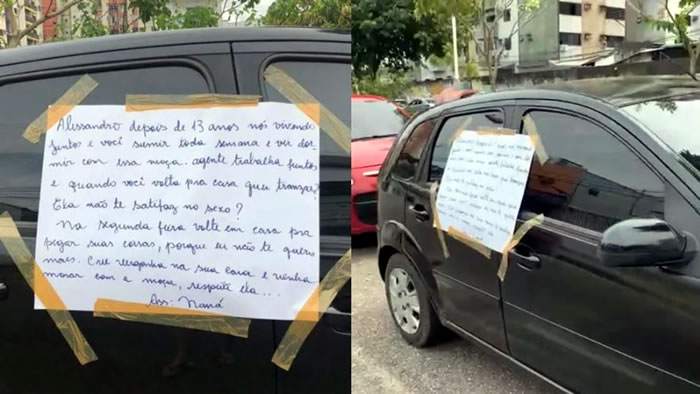 Alessandro depois de 13 anos nós vivendo
juntos e você sumir toda semana e ver dor-
mir com essa moça. agente trabalha juntos
e quando você volta pra casa quer transar?
Eka não te satifaz no sexo?
Na segunda feira volte em casa pra
pegar suas coisas, porque eu não te quero
mais. Crie vergonha na sua cara e venha
morar com a moça, respeite eka...
Ass: Naná